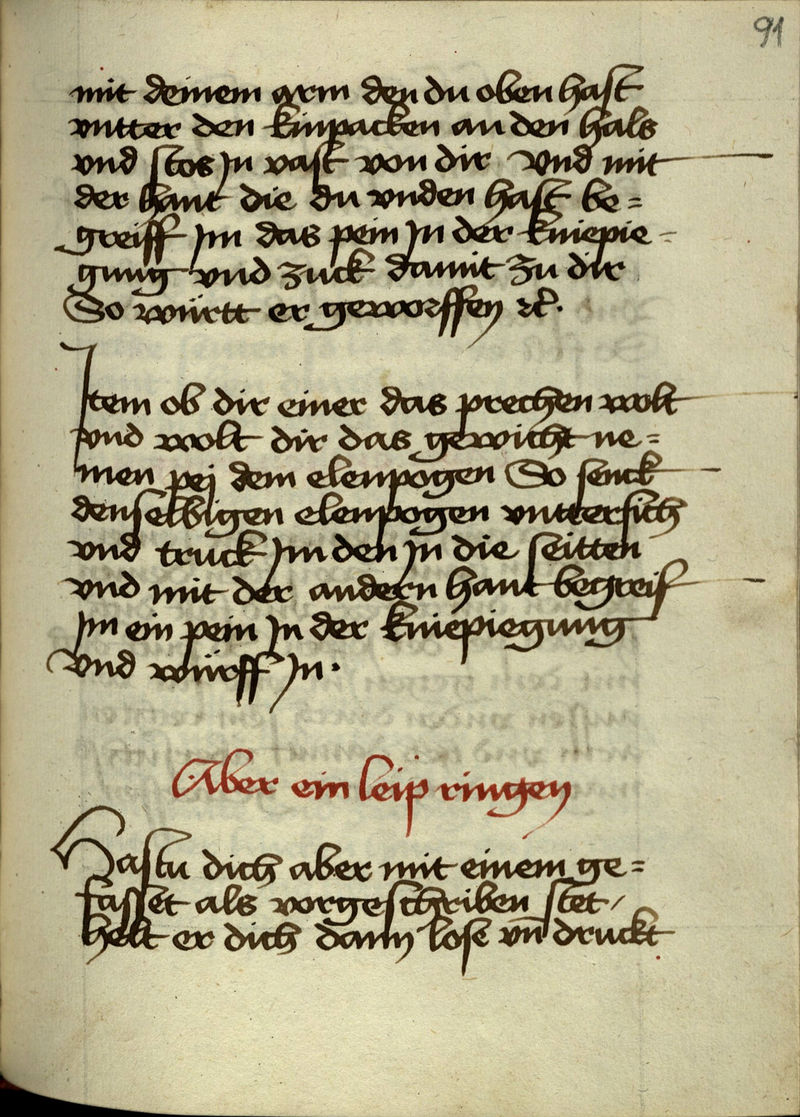 91
mit deinem arm den du oben hast
vntter den kinpacken an den hals
vnd stos Jn vast von dir Vnd mit
der hant die du vnden hast be=
greiff Jm das pein Jn der kniepie-
gung vnd zuck damit zu dir
So württ er geworffen rc.
Jtem ob dir einer das prechen wolt
vnd wolt dir das gewicht ne=
men pej dem elenpogen So senck
denselbigen elenpogen vnttersich
vnd truck Jm den Jn die seitten
vnd mit der andern hant begreif
Jm ein pein Jn der kniepiegung
Vnd würff Jn.
Aber ein leip ringen
Hastu dich aber mit einem ge=
fasset als vorgeschriben stet/
helt er dich dann lose vn̄ druckt